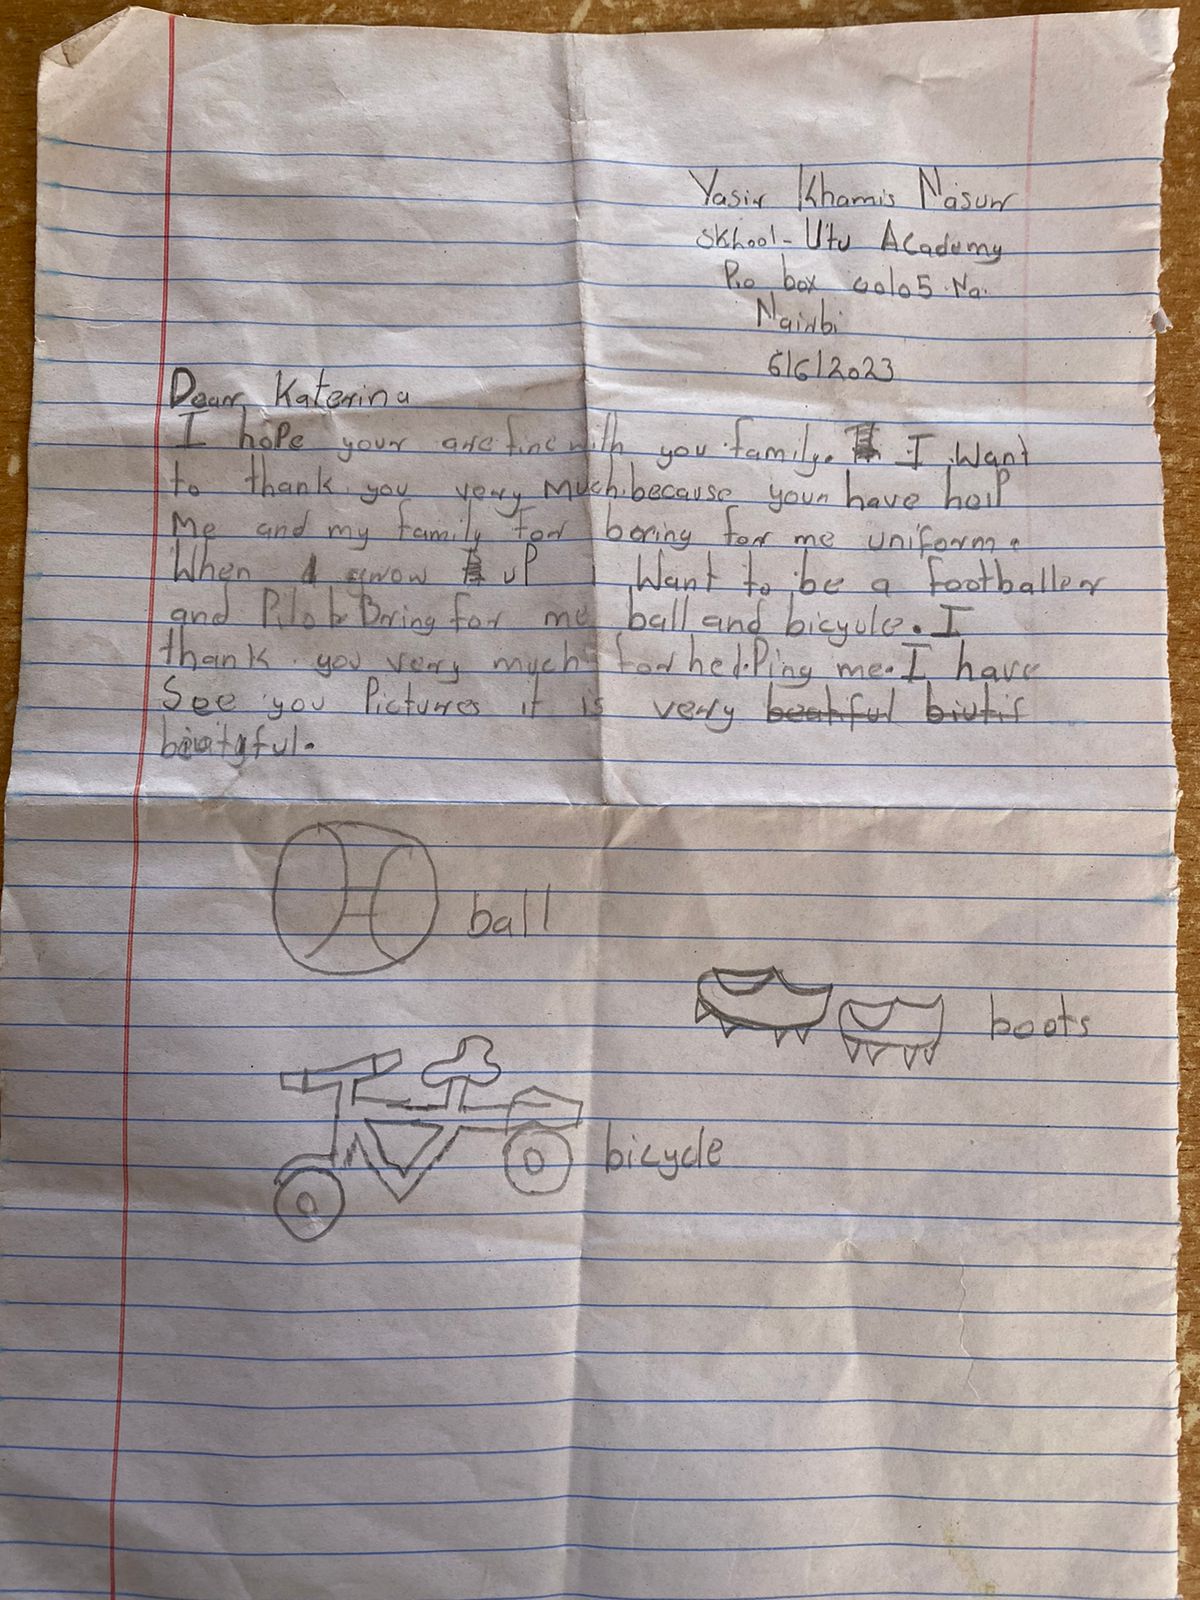 Yasir Khamis Nasur
Skhool - Utu Academy
P.o box 00105 Na.
Nairbi
6/6/2023
Dear Katerina
I hope your are fine with you family. I want
to thank you very much because your have help
me and my family for boring for me uniform.
When I grow up I want to be a footballer
and Bring for me ball and bicycle. I
thank you very much for helping me. I have
See you Pictures it is very beatiful biutif
ball
boots
bicycle